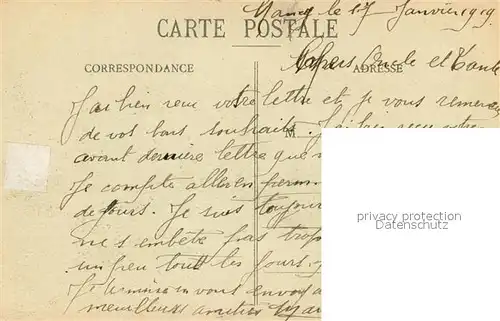 Nancy le 17 Janvier 1919
CARTE POSTALE
Chers Oncle et Tante
CORRESPONDANCE
ADRESSE
J'ai bien reçu votre lettre et je vous remercie
de vos bons souhaits. J'ai bien reçu votre
M
avant dernière lettre que
Je compte aller en perm
de jours. Je suis toujours
ne s'embête pas trop
un peu tout les jours.
Je termine en vous envoyant
meilleures amitiés
privacy protection
Datenschutz